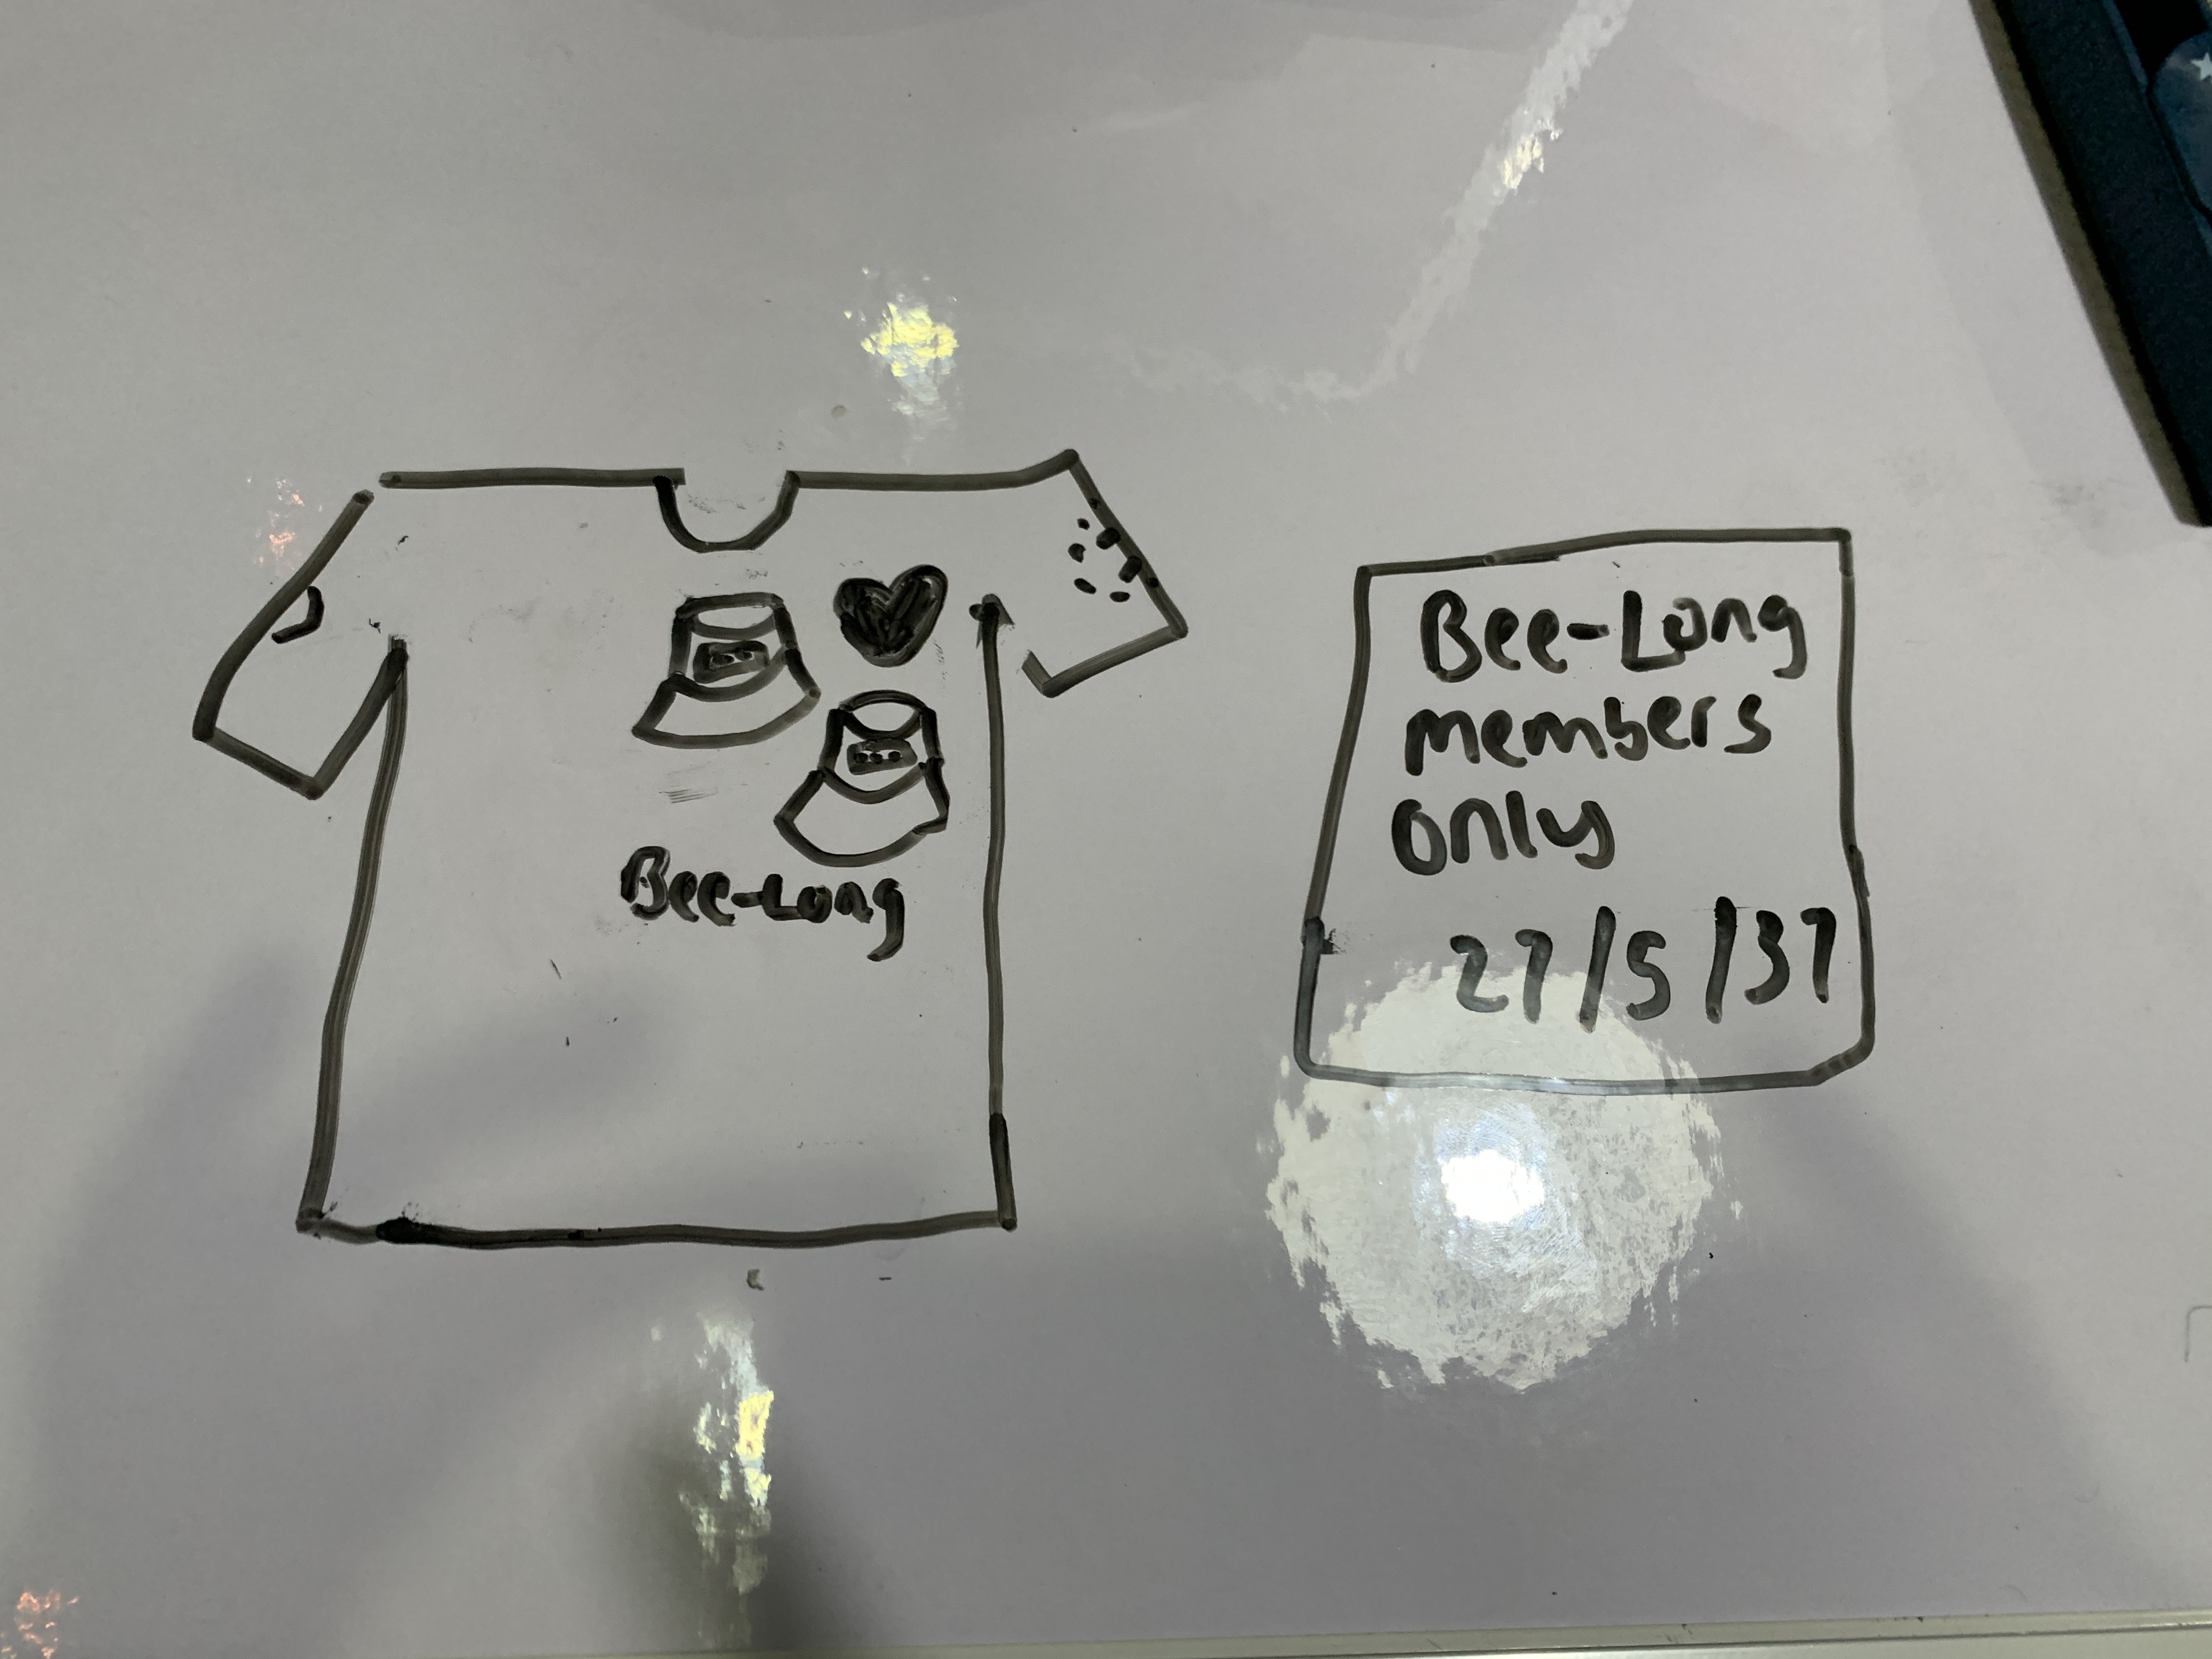 Bee-Long
Bee-Long
members
only
27/5/37